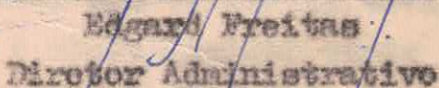 Edgard Freitas
Diretor Administrativo